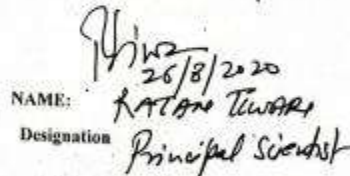 26/8/2020
NAME: RATAN TIWARI
Designation Principal Scientist